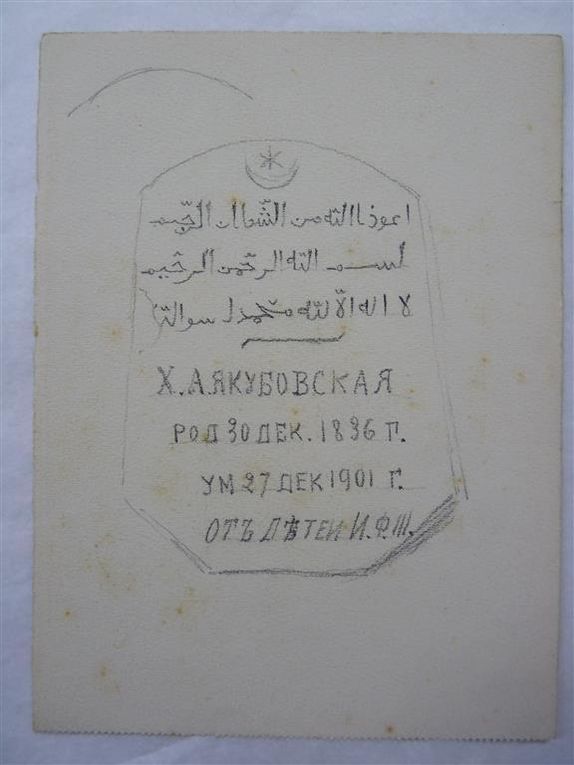 اعوذ باالله من الشيطان الرجيم
بسم الله الرحمن الرحيم
لا اله الا الله محمد رسوالله
Х.А.ЯКУБОВСКАЯ
РОД 30 ДЕК. 1836 Г.
УМ 27 ДЕК 1901 Г.
ОТЪ ДѢТЕЙ И.Ф.Ш.